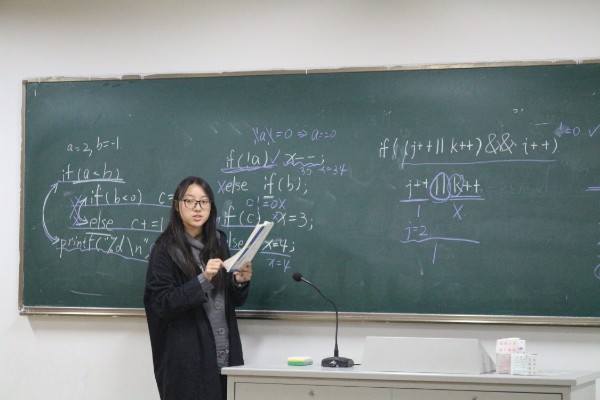 a=2, b=-1
if(a<b)
if(b<0) c=
else c+=1
printf("%d\n"
!a =0 => a=0
if(!a) x--;
35 x=34
xelse if(b);
if(c) x=3;
else x=4;
x=4
if((j++||k++)&& i++)
j++ || k++
1 X
j=2
1